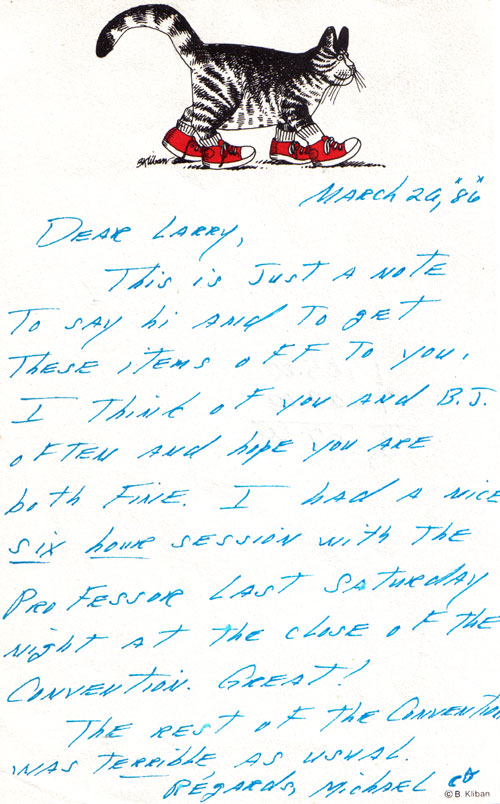 BKliban
MARCH 26, "86"
DEAR LARRY,
THIS is JUST A NOTE
TO SAY hi AND TO GET
THESE iTEMS OFF TO YOU.
I THINK OF YOU AND B.J.
OFTEN AND hOPE YOU ARE
both FINE. I hAD A NICE
Six hOUR SESSION with THE
PROFESSOR LAST SATURDAY
NighT AT THE CLOSE OF THE
CONVENTION. GREAT!
THE REST OF THE CONVENTION
WAS TERRIBLE AS USUAL.
REGARDS, MiCHAEL
© B. Kliban